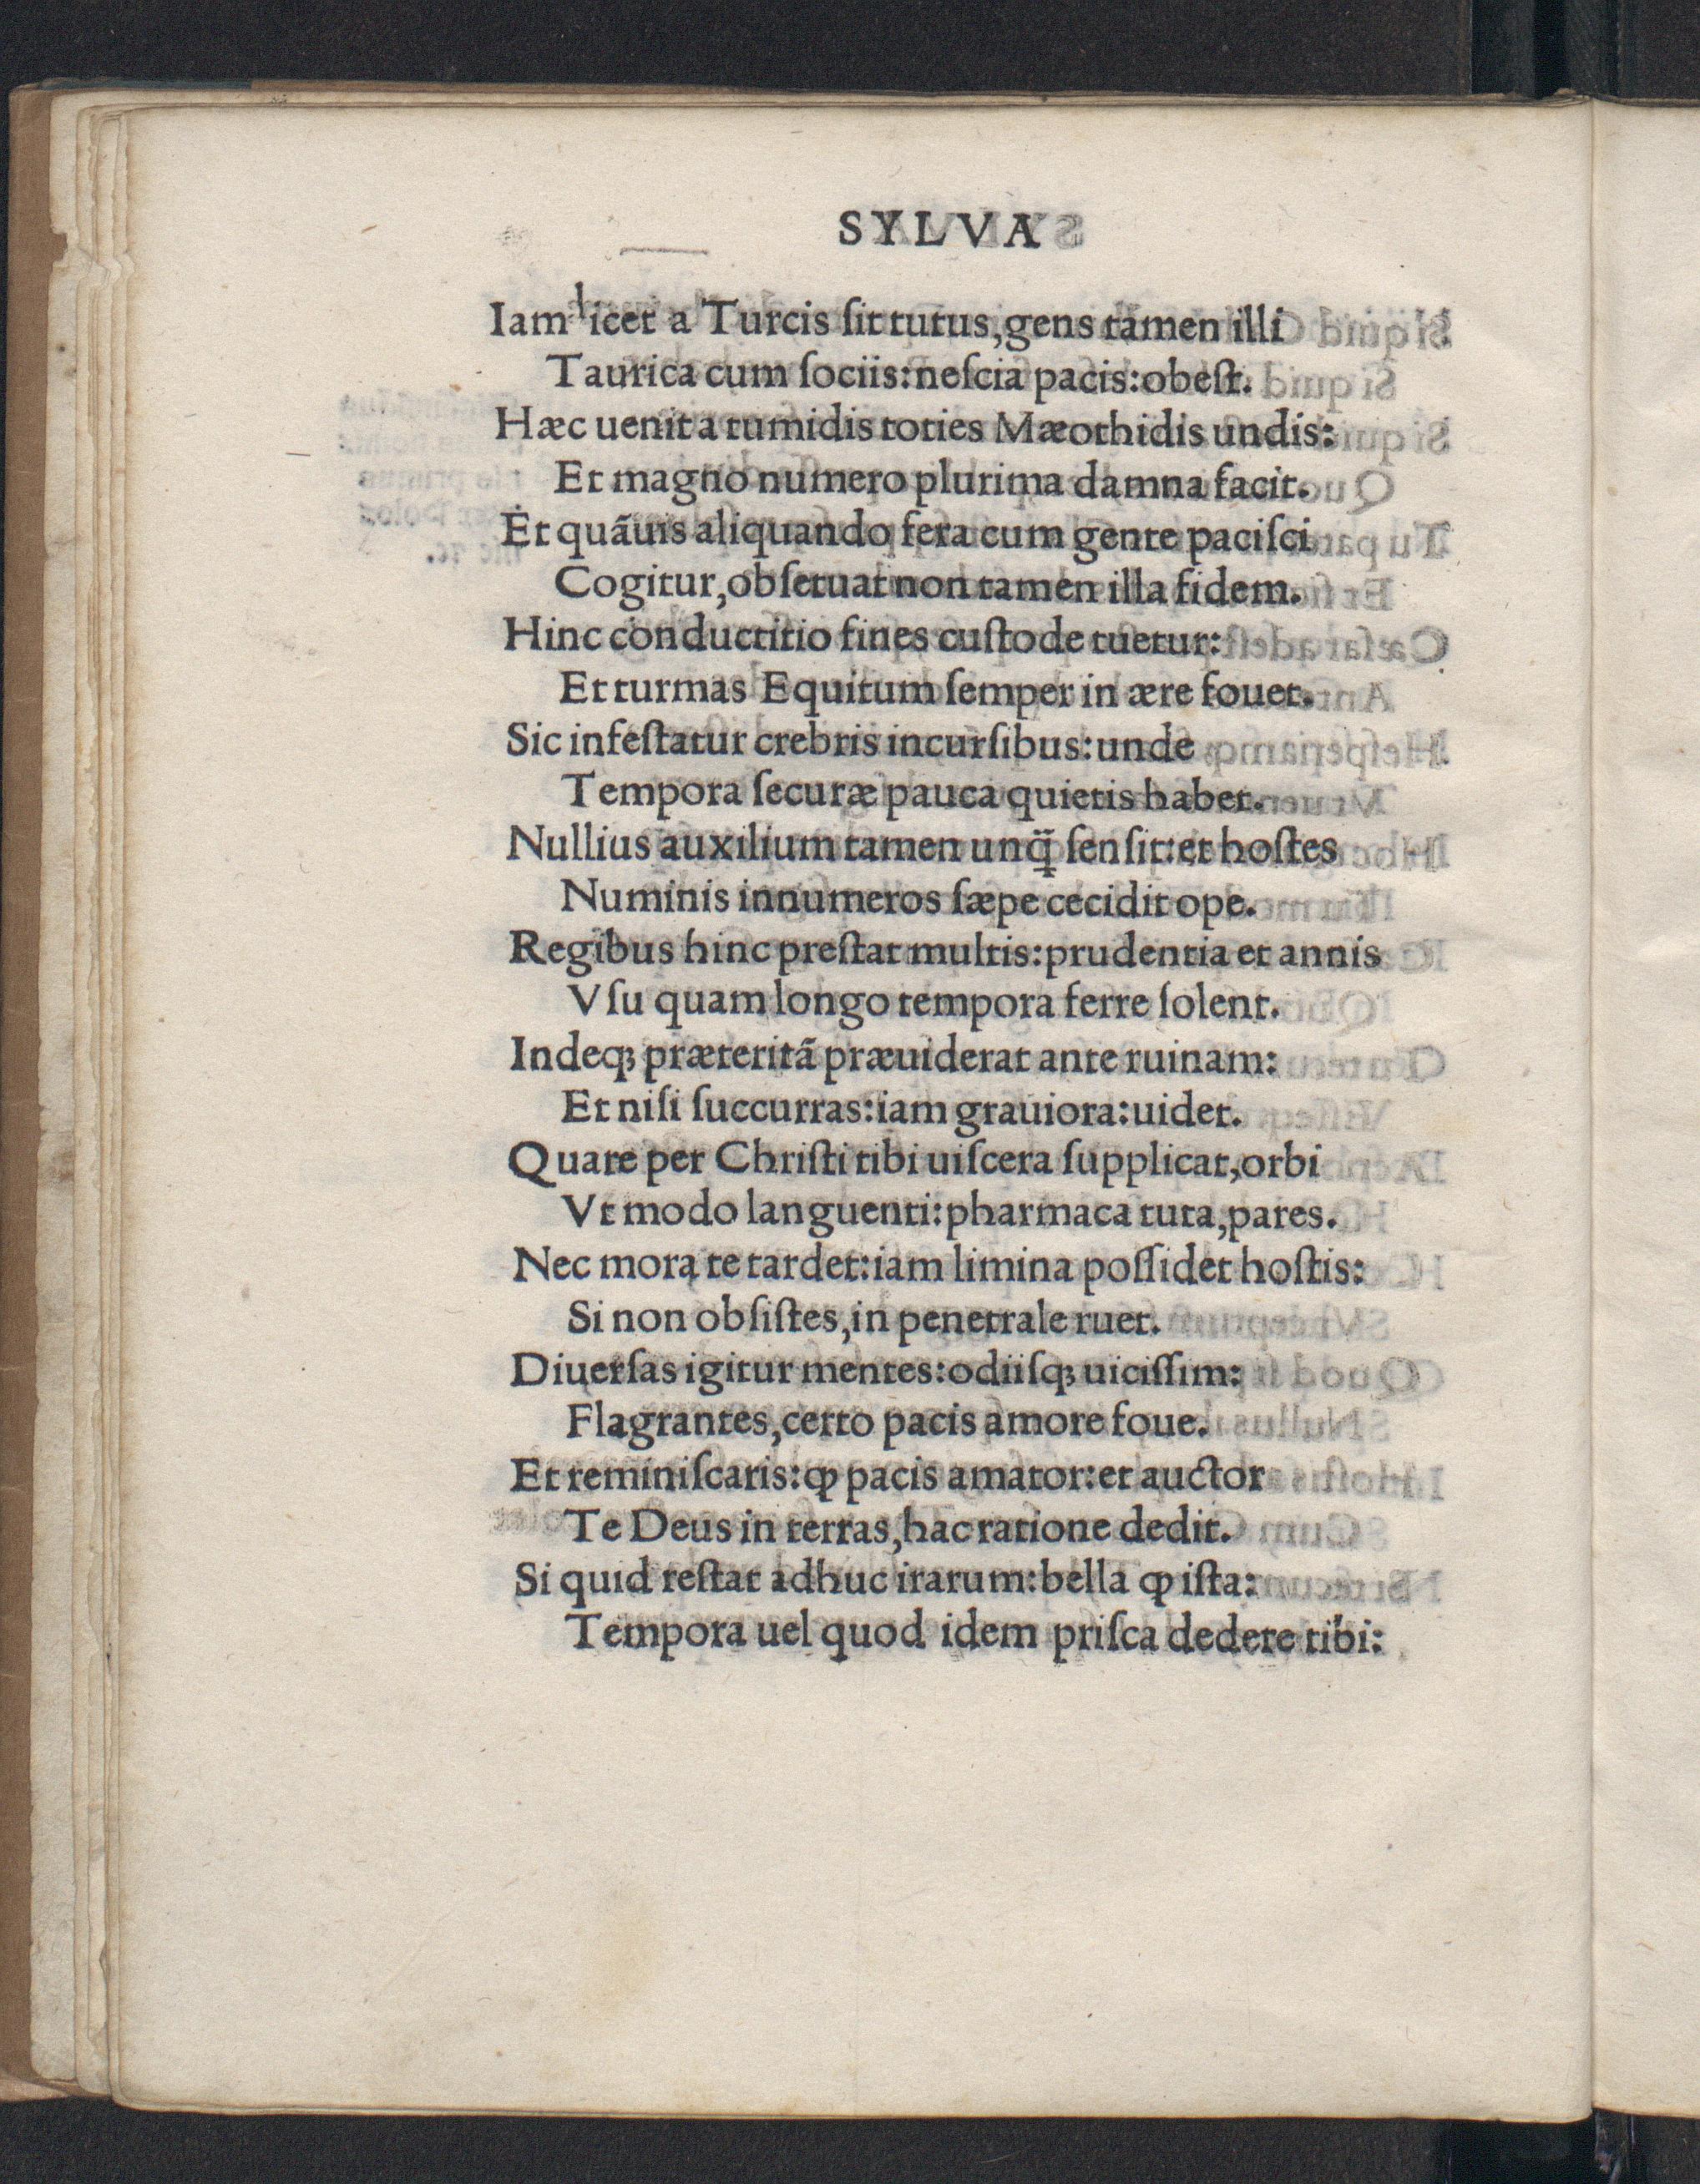 SYLVA
Iam licet a Turcis ſit tutus,gens tamen illi
Taurica cum ſociis:neſcia pacis:obeſt.
Hæc uenit a tumidis toties Mæothidis undis:
Et magno numero plurima damna facit.
Et quãuis aliquando fera cum gente paciſci
Cogitur,obſeruat non tamen illa fidem.
Hinc conductitio fines cuſtode tuetur:
Et turmas Equitum ſemper in ære fouet.
Sic infeſtatur crebris incurſibus:unde
Tempora ſecuræ pauca quietis habet.
Nullius auxilium tamen unq̃ ſenſit:et hoſtes
Numinis innumeros ſæpe cecidit ope.
Regibus hinc preſtat multis:prudentia et annis
Vſu quam longo tempora ferre ſolent.
Indeqꝫ præteritã præuiderat ante ruinam:
Et niſi ſuccurras:iam grauiora:uidet.
Quare per Chriſti tibi uiſcera ſupplicat,orbi
Vt modo languenti:pharmaca tuta,pares.
Nec mora te tardet:iam limina poſſidet hoſtis:
Si non obſiſtes,in penetrale ruet.
Diuerſas igitur mentes:odiiſqꝫ uiciſſim:
Flagrantes,certo pacis amore foue.
Et reminiſcaris:ꝙ pacis amator:et auctor
Te Deus in terras,hac ratione dedit.
Si quid reſtat adhuc irarum:bella ꝙ iſta:
Tempora uel quod idem priſca dedere tibi: